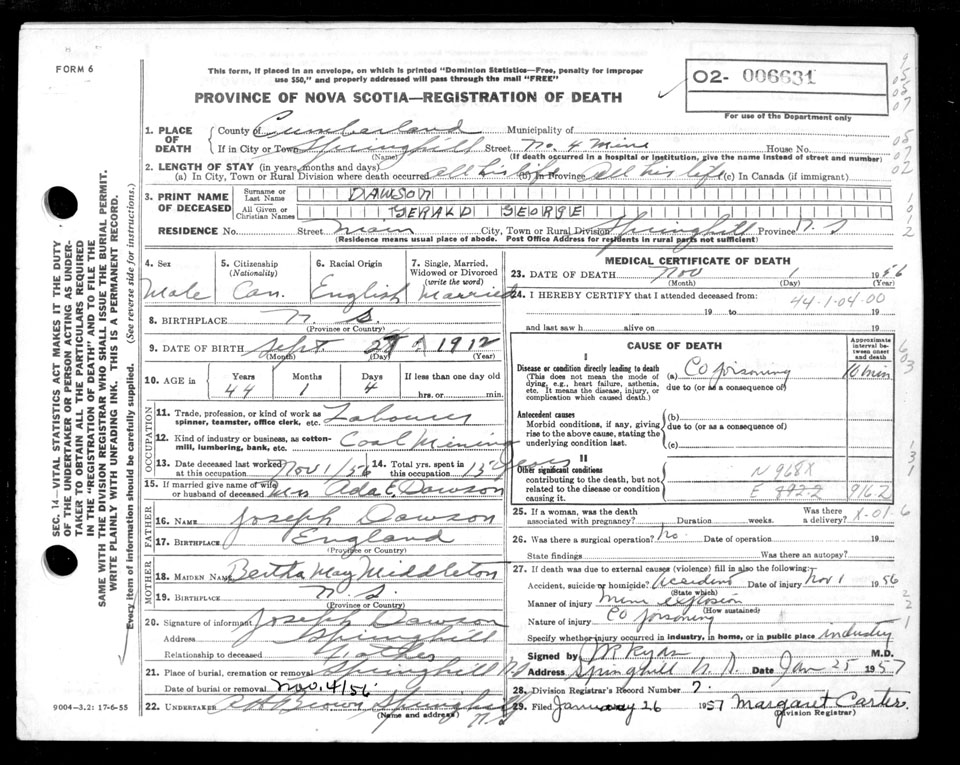 FORM 6
This form, if placed in an envelope, on which is printed "Dominion Statistics—Free, penalty for improper
use $50," and properly addressed will pass through the mail "FREE"
02- 006631
For use of the Department only
PROVINCE OF NOVA SCOTIA—REGISTRATION OF DEATH
1. PLACE OF DEATH
County of Cumberland Municipality of
If in City or Town Springhill Street No. 4 Mine House No.
(Name) (If death occurred in a hospital or institution, give the name instead of street and number)
2. LENGTH OF STAY (in years, months and days)
(a) In City, Town or Rural Division where death occurred all his life (b) In Province All his life (c) In Canada (if immigrant)
3. PRINT NAME OF DECEASED
Surname or Last Name DAWSON
All Given or Christian Names JERALD GEORGE
RESIDENCE No. Street Main City, Town or Rural Division Springhill Province N.S
(Residence means usual place of abode. Post Office Address for residents in rural parts not sufficient)
4. Sex Male
5. Citizenship (Nationality) Can.
6. Racial Origin English
7. Single, Married, Widowed or Divorced (write the word) Married
8. BIRTHPLACE N. S.
(Province or County)
9. DATE OF BIRTH Sept. 28 1912
(Month) (Day) (Year)
10. AGE in Years 44 Months 1 Days 4 If less than one day old
hrs. or min.
OCCUPATION
11. Trade, profession, or kind of work as spinner, teamster, office clerk, etc. Labourer
12. Kind of industry or business, as cotton-mill, lumbering, bank, etc. Coal Mining
13. Date deceased last worked at this occupation Nov 1/56
14. Total yrs. spent in this occupation 13 years
15. If married give name of wife or husband of deceased Mrs Ada E. Dawson
FATHER
16. NAME Joseph Dawson
17. BIRTHPLACE England
(Province or Country)
MOTHER
18. MAIDEN NAME Bertha May Middleton
19. BIRTHPLACE N. S.
(Province or Country)
20. Signature of informant Joseph Dawson
Address Springhill
Relationship to deceased Father
21. Place of burial, cremation or removal Springhill N.S
Date of burial or removal Nov. 4/56
22. UNDERTAKER A H Brown Springhill N.S
(Name and address)
9004—3.2: 17-6-55
MEDICAL CERTIFICATE OF DEATH
23. DATE OF DEATH Nov 1 1956
(Month) (Day) (Year)
24. I HEREBY CERTIFY that I attended deceased from:
44-1-04-00
19 to 19
and last saw h alive on 19
CAUSE OF DEATH
Approximate interval between onset and death
I
Disease or condition directly leading to death
(This does not mean the mode of dying, e.g., heart failure, asthenia, etc. It means the disease, injury, or complication which caused death.)
(a) Co poisoning 10 min
due to (or as a consequence of)
Antecedent causes
Morbid conditions, if any, giving rise to the above cause, stating the underlying condition last.
(b)
due to (or as a consequence of)
(c)
II
Other significant conditions contributing to the death, but not related to the disease or condition causing it.
N 968X
E 916.2
25. If a woman, was the death associated with pregnancy? Duration weeks. Was there a delivery? X-01-6
26. Was there a surgical operation? No. Date of operation 19
State findings Was there an autopsy?
27. If death was due to external causes (violence) fill in also the following:
Accident, suicide or homicide? Accident Date of injury Nov 1 1956
(State which)
Manner of injury Mine explosion
(How sustained)
Nature of injury Co poisoning
Specify whether injury occurred in industry, in home, or in public place industry
Signed by J R Ryan M.D.
Address Springhill N. S. Date Jan 25 1957
28. Division Registrar's Record Number 7.
29. Filed January 26 1957 Margaret Carter.
(Division Registrar)
SEC. 14—VITAL STATISTICS ACT MAKES IT THE DUTY
OF THE UNDERTAKER OR PERSON ACTING AS UNDER-
TAKER TO OBTAIN ALL THE PARTICULARS REQUIRED
IN THE "REGISTRATION OF DEATH" AND TO FILE THE
SAME WITH THE DIVISION REGISTRAR WHO SHALL ISSUE THE BURIAL PERMIT.
WRITE PLAINLY WITH UNFADING INK. THIS IS A PERMANENT RECORD.
Every item of information should be carefully supplied. (See reverse side for instructions.)